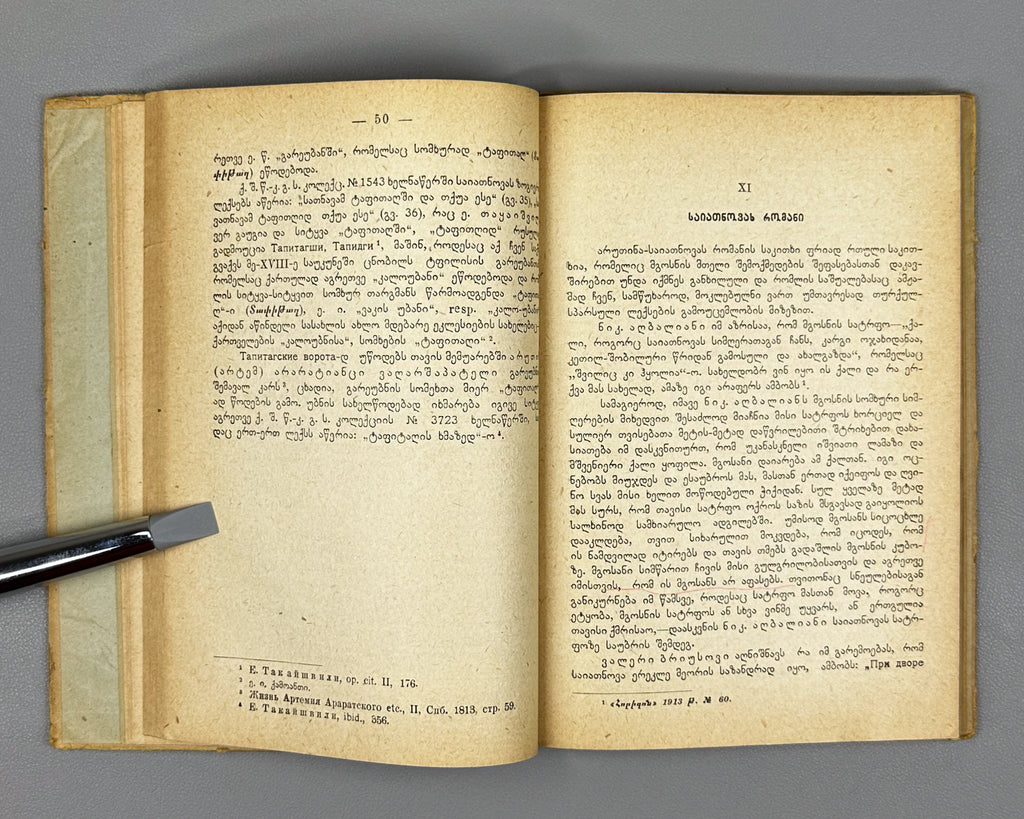 — 50 —
რეთვე ე. წ. „გარეუბანში“, რომელსაც სომხურად „ტაფითაღ“
փիթաղ) ეწოდებოდა.
ქ. შ. წ.-კ. გ. ს. კოლექც. № 1543 ხელნაწერში საიათნოვას
ლექსებს აწერია: „სათნავამ ტაფითაღში და თქუა ესე“ (გვ. 35),
ვათნავამ ტაფითღიდ თქუა ესე“ (გვ. 36), რაც ე. თაყაიშვილ
ვერ გაუგია და სიტყვა „ტაფითაღში“, „ტაფითღიდ“ რუსულ
გადმოუცია Тапитагши, Тапидги ¹, მაშინ, როდესაც აქ ჩვენ
გვაქვს მე-XVIII-ე საუკუნეში ცნობილს ტფილისის გარეუბანთ
რომელსაც ქართულად აგრეთვე „კალოუბანი“ ეწოდებოდა და
ლის სიტყვა-სიტყვით სომხურ თარგმანს წარმოადგენდა
ღ“-ი (Տափիթաղ), ე. ი. „ვაკის უბანი“, resp. „კალო-უბანი
აქიდან აწინდელი სასახლის ახლო მდებარე ეკლესიების სახელები:
ქართველების „კალოუბნისა“, სომხების „ტაფითაღი“ ².
Тапитагские ворота-დ უწოდებს თავის მემუარებში არუთი
(არტემ) არარატიანცი ვაღარშაპატელი გარეუბნ
შემავალ კარს ³, ცხადია, გარეუბნის სომეხთა მიერ „ტაფითაღ
ად წოდების გამო. უბნის სახელწოდებად იხმარება იგივე
აგრეთვე ქ. შ. წ.-კ. გ. ს. კოლექციის № 3723 ხელნაწერში,
დაც ერთ-ერთ ლექსს აწერია: „ტაფიტაღის ხმაზედ“-ო ⁴.
¹ Е. Такайшвили, op. cit. II, 176.
² ე. ი. ქამოანთი.
³ Жизнь Артемия Араратского etc., II, Спб. 1813, стр. 59.
⁴ Е. Такайшвили, ibid., 356.
XI
საიათნოვას რომანი
არუთინა-საიათნოვას რომანის საკითხი ფრიად რთული საკით-
ხია, რომელიც მგოსნის მთელი შემოქმედების შეფასებასთან დაკავ-
შირებით უნდა იქმნეს განხილული და რომლის საშუალებასაც ამჟა-
მად ჩვენ, სამწუხაროდ, მოკლებულნი ვართ უმთავრესად თურქულ-
სპარსული ლექსების გამოუცემლობის მიზეზით.
ნიკ. აღბალიანი იმ აზრისაა, რომ მგოსნის სატრფო—„ქა-
ლი, როგორც საიათნოვას სიმღერათაგან ჩანს, კარგი ოჯახიდანაა,
კეთილ-შობილური წრიდან გამოსული და ახალგაზდა“, რომელსაც
„შვილიც კი ჰყოლია“-ო. სახელდობრ ვინ იყო ის ქალი და რა ერ-
ქვა მას სახელად, ამაზე იგი არაფერს ამბობს ¹.
სამაგიეროდ, იმავე ნიკ. აღბალიანს მგოსნის სომხური სიმ-
ღერების მიხედვით შესაძლოდ მიაჩნია მისი სატრფოს ხორციელ და
სულიერ თვისებათა მეტის-მეტად დაწვრილებითი შტრიხებით დახა-
სიათება იმ დასკვნითურთ, რომ უკანასკნელი იშვიათი ლამაზი და
მშვენიერი ქალი ყოფილა. მგოსანი დაიარება ამ ქალთან. იგი ოც-
ნებობს მიუჯდეს და ესაუბროს მას, მასთან ერთად იქეიფოს და ღვი-
ნო სვას მისი ხელით მოწოდებული ჭიქიდან. სულ ყველაზე მეტად
მას სურს, რომ თავისი სატრფო ოქროს საზის მსგავსად გაიყოლიოს
სალხინოდ სამხიარულო ადგილებში. უმისოდ მგოსანს სიცოცხლე
დააკლდება, თვით სიხარულით მოკვდება, რომ იცოდეს, რომ
ის ნამდვილად იტირებს და თავის თმებს გადაშლის მგოსნის კუბო-
ზე. მგოსანი სიმწარით ჩივის მისი გულგრილობისათვის და აგრეთვე
იმისთვის, რომ ის მგოსანს არ აფასებს. თვითონაც სნეულებისაგან
განიკურნება იმ წამსვე, როდესაც სატრფო მასთან მოვა, როგორც
ეტყობა, მგოსნის სატრფოს ან სხვა ვინმე უყვარს, ან ერთგულია
თავისი ქმრისაო,—დაასკვნის ნიკ. აღბალიანი საიათნოვას სატრ-
ფოზე საუბრის შემდეგ.
ვალერი ბრიუსოვი აღნიშნავს რა იმ გარემოებას, რომ
საიათნოვა ერეკლე მეორის საზანდრად იყო, ამბობს: „При дворе
¹ «Հորիզոն» 1913 թ. № 60.